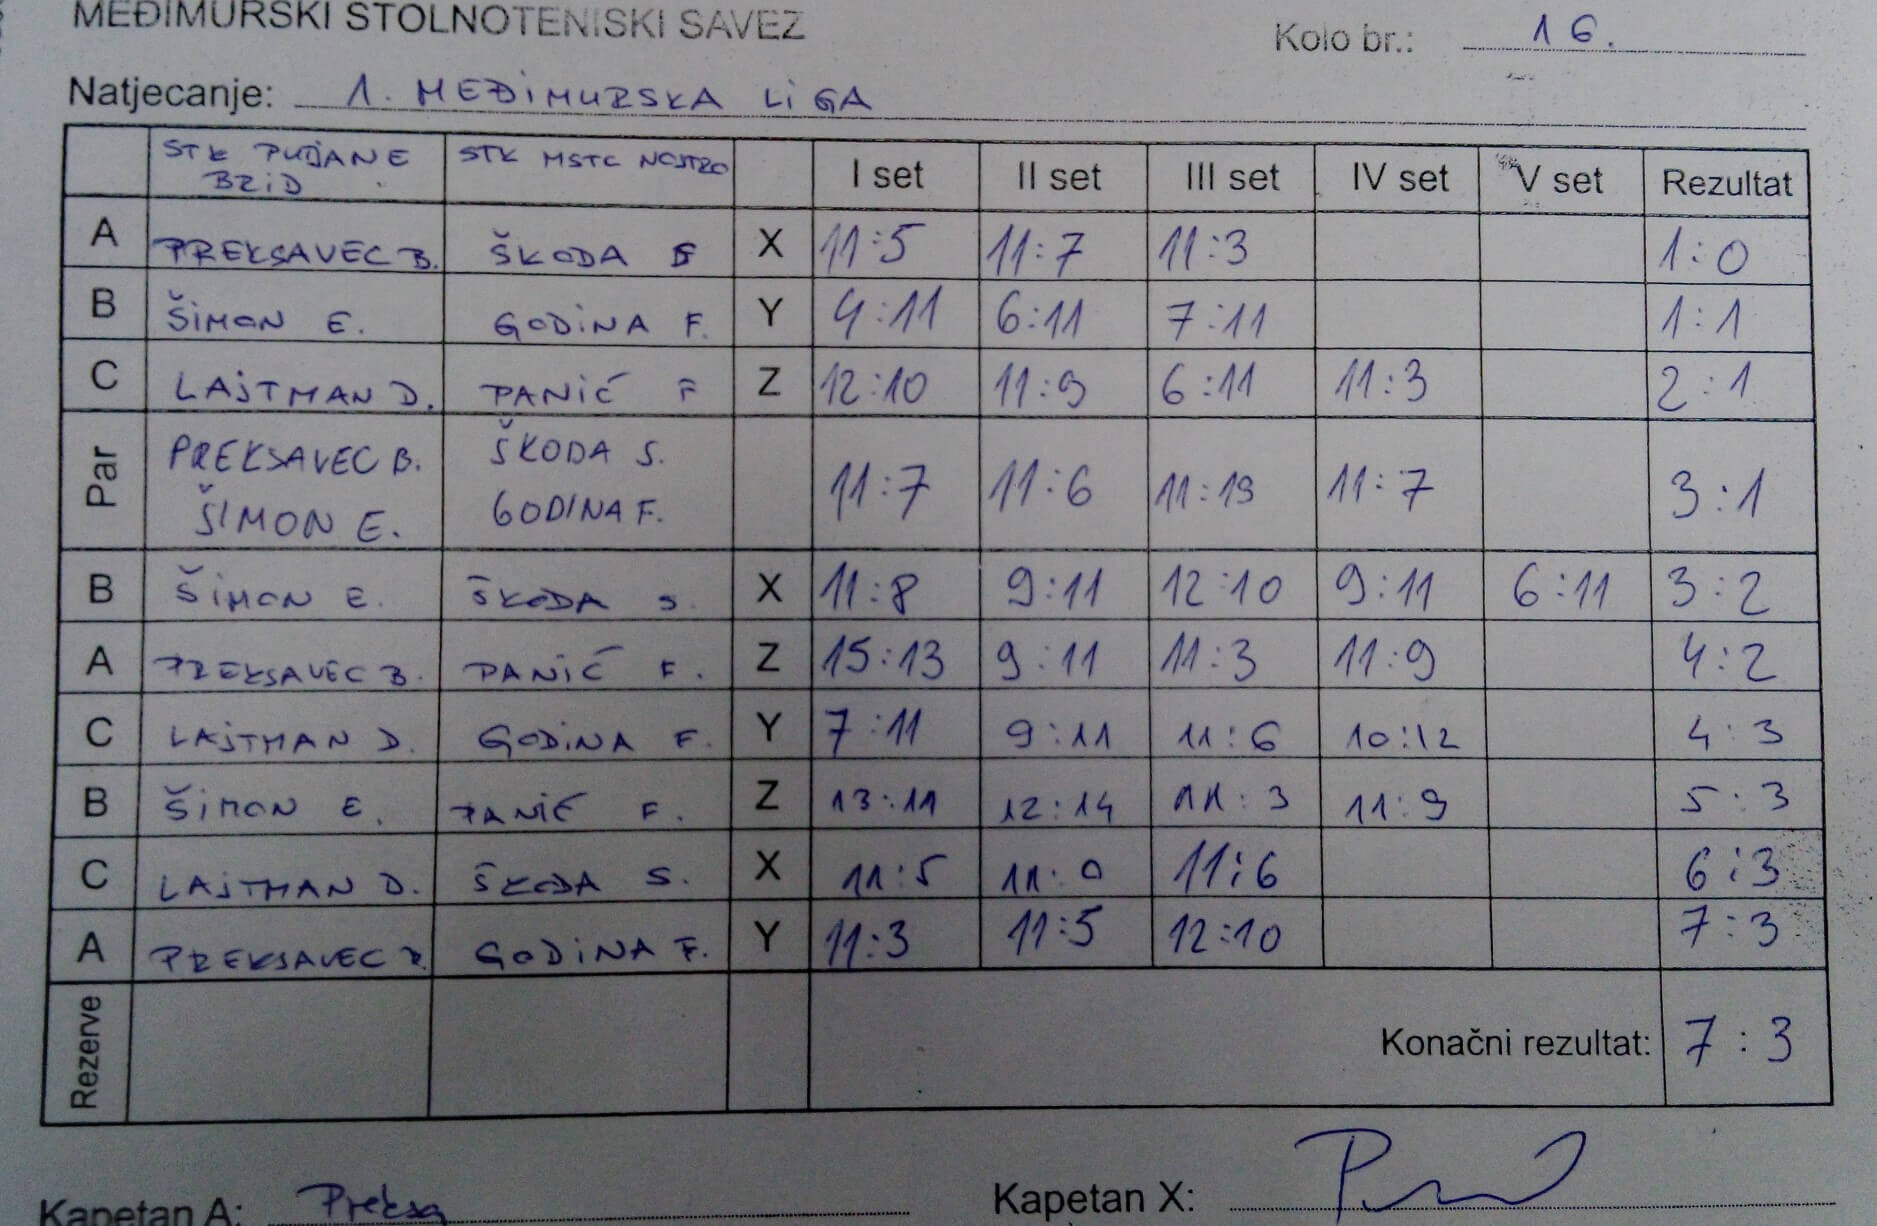 MEĐIMURSKI STOLNOTENISKI SAVEZ
Kolo br.: 16.
Natjecanje: 1. MEĐIMURSKA LIGA
STK PUTJANE BRID STK MSTC NOSTRO I set II set III set IV set V set Rezultat
A PREKSAVEC B. ŠKODA S X 11:5 11:7 11:3 1:0
B ŠIMON E. GODINA F. Y 4:11 6:11 7:11 1:1
C LAJTMAN D. PANIĆ F Z 12:10 11:9 6:11 11:3 2:1
Par PREKSAVEC B. ŠIMON E. ŠKODA S. GODINA F. 11:7 11:6 11:13 11:7 3:1
B ŠIMON E. ŠKODA S. X 11:8 9:11 12:10 9:11 6:11 3:2
A PREKSAVEC B. PANIĆ F. Z 15:13 9:11 11:3 11:9 4:2
C LAJTMAN D. GODINA F. Y 7:11 9:11 11:6 10:12 4:3
B ŠIMON E. PANIĆ F. Z 13:11 12:14 11:3 11:9 5:3
C LAJTMAN D. ŠKODA S. X 11:5 11:9 11:6 6:3
A PREKSAVEC B. GODINA F. Y 11:3 11:5 12:10 7:3
Rezerve Konačni rezultat: 7:3
Kapetan A: Preksa Kapetan X: